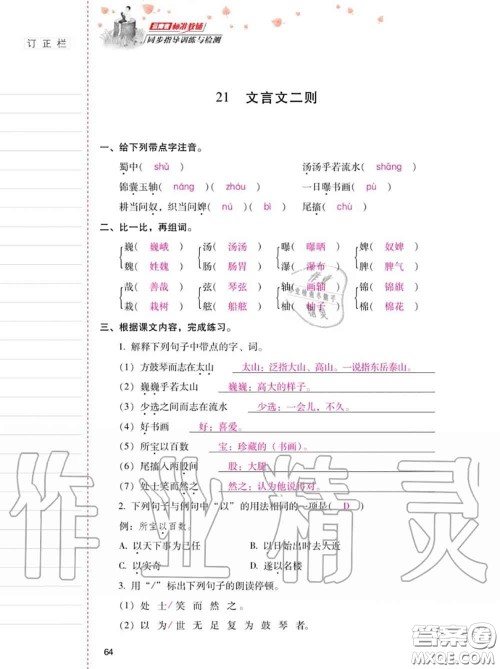 订正栏
云南省标准教辅
同步指导训练与检测
21 文言文二则
一、给下列带点字注音。
蜀中( shǔ ) 汤汤乎若流水( shāng )
锦囊玉轴( náng )( zhóu ) 一日曝书画( pù )
耕当问奴，织当问婢( nú )( bì ) 尾搐( chù )
二、比一比，再组词。
巍( 巍峨 ) 汤( 汤汤 ) 曝( 曝晒 ) 婢( 奴婢 )
魏( 姓魏 ) 肠( 肠胃 ) 瀑( 瀑布 ) 脾( 脾气 )
哉( 善哉 ) 弦( 琴弦 ) 轴( 画轴 ) 锦( 锦旗 )
栽( 栽树 ) 舷( 船舷 ) 柚( 柚子 ) 棉( 棉花 )
三、根据课文内容，完成练习。
1. 解释下列句子中带点的字、词。
(1) 方鼓琴而志在太山 太山：泛指大山、高山。一说指东岳泰山。
(2) 巍巍乎若太山 巍巍：高大的样子。
(3) 少选之间而志在流水 少选：一会儿，不久。
(4) 好书画 好：喜爱。
(5) 所宝以百数 宝：珍藏的（书画）。
(6) 尾搐入两股间 股：大腿
(7) 处士笑而然之 然之：认为他说得对。
2. 下列句子与例句中“以”的用法相同的一项是( D )
例：所宝以百数。
A. 以天下事为己任 B. 以日始出时去人近
C. 以实奇 D. 遂以名楼
3. 用“/”标出下列句子的朗读停顿。
(1) 处 士/笑 而 然 之。
(2) 以 为/世 无 足 复 为 鼓 琴 者。
64
作业精灵
答案圈
MXQE.COM